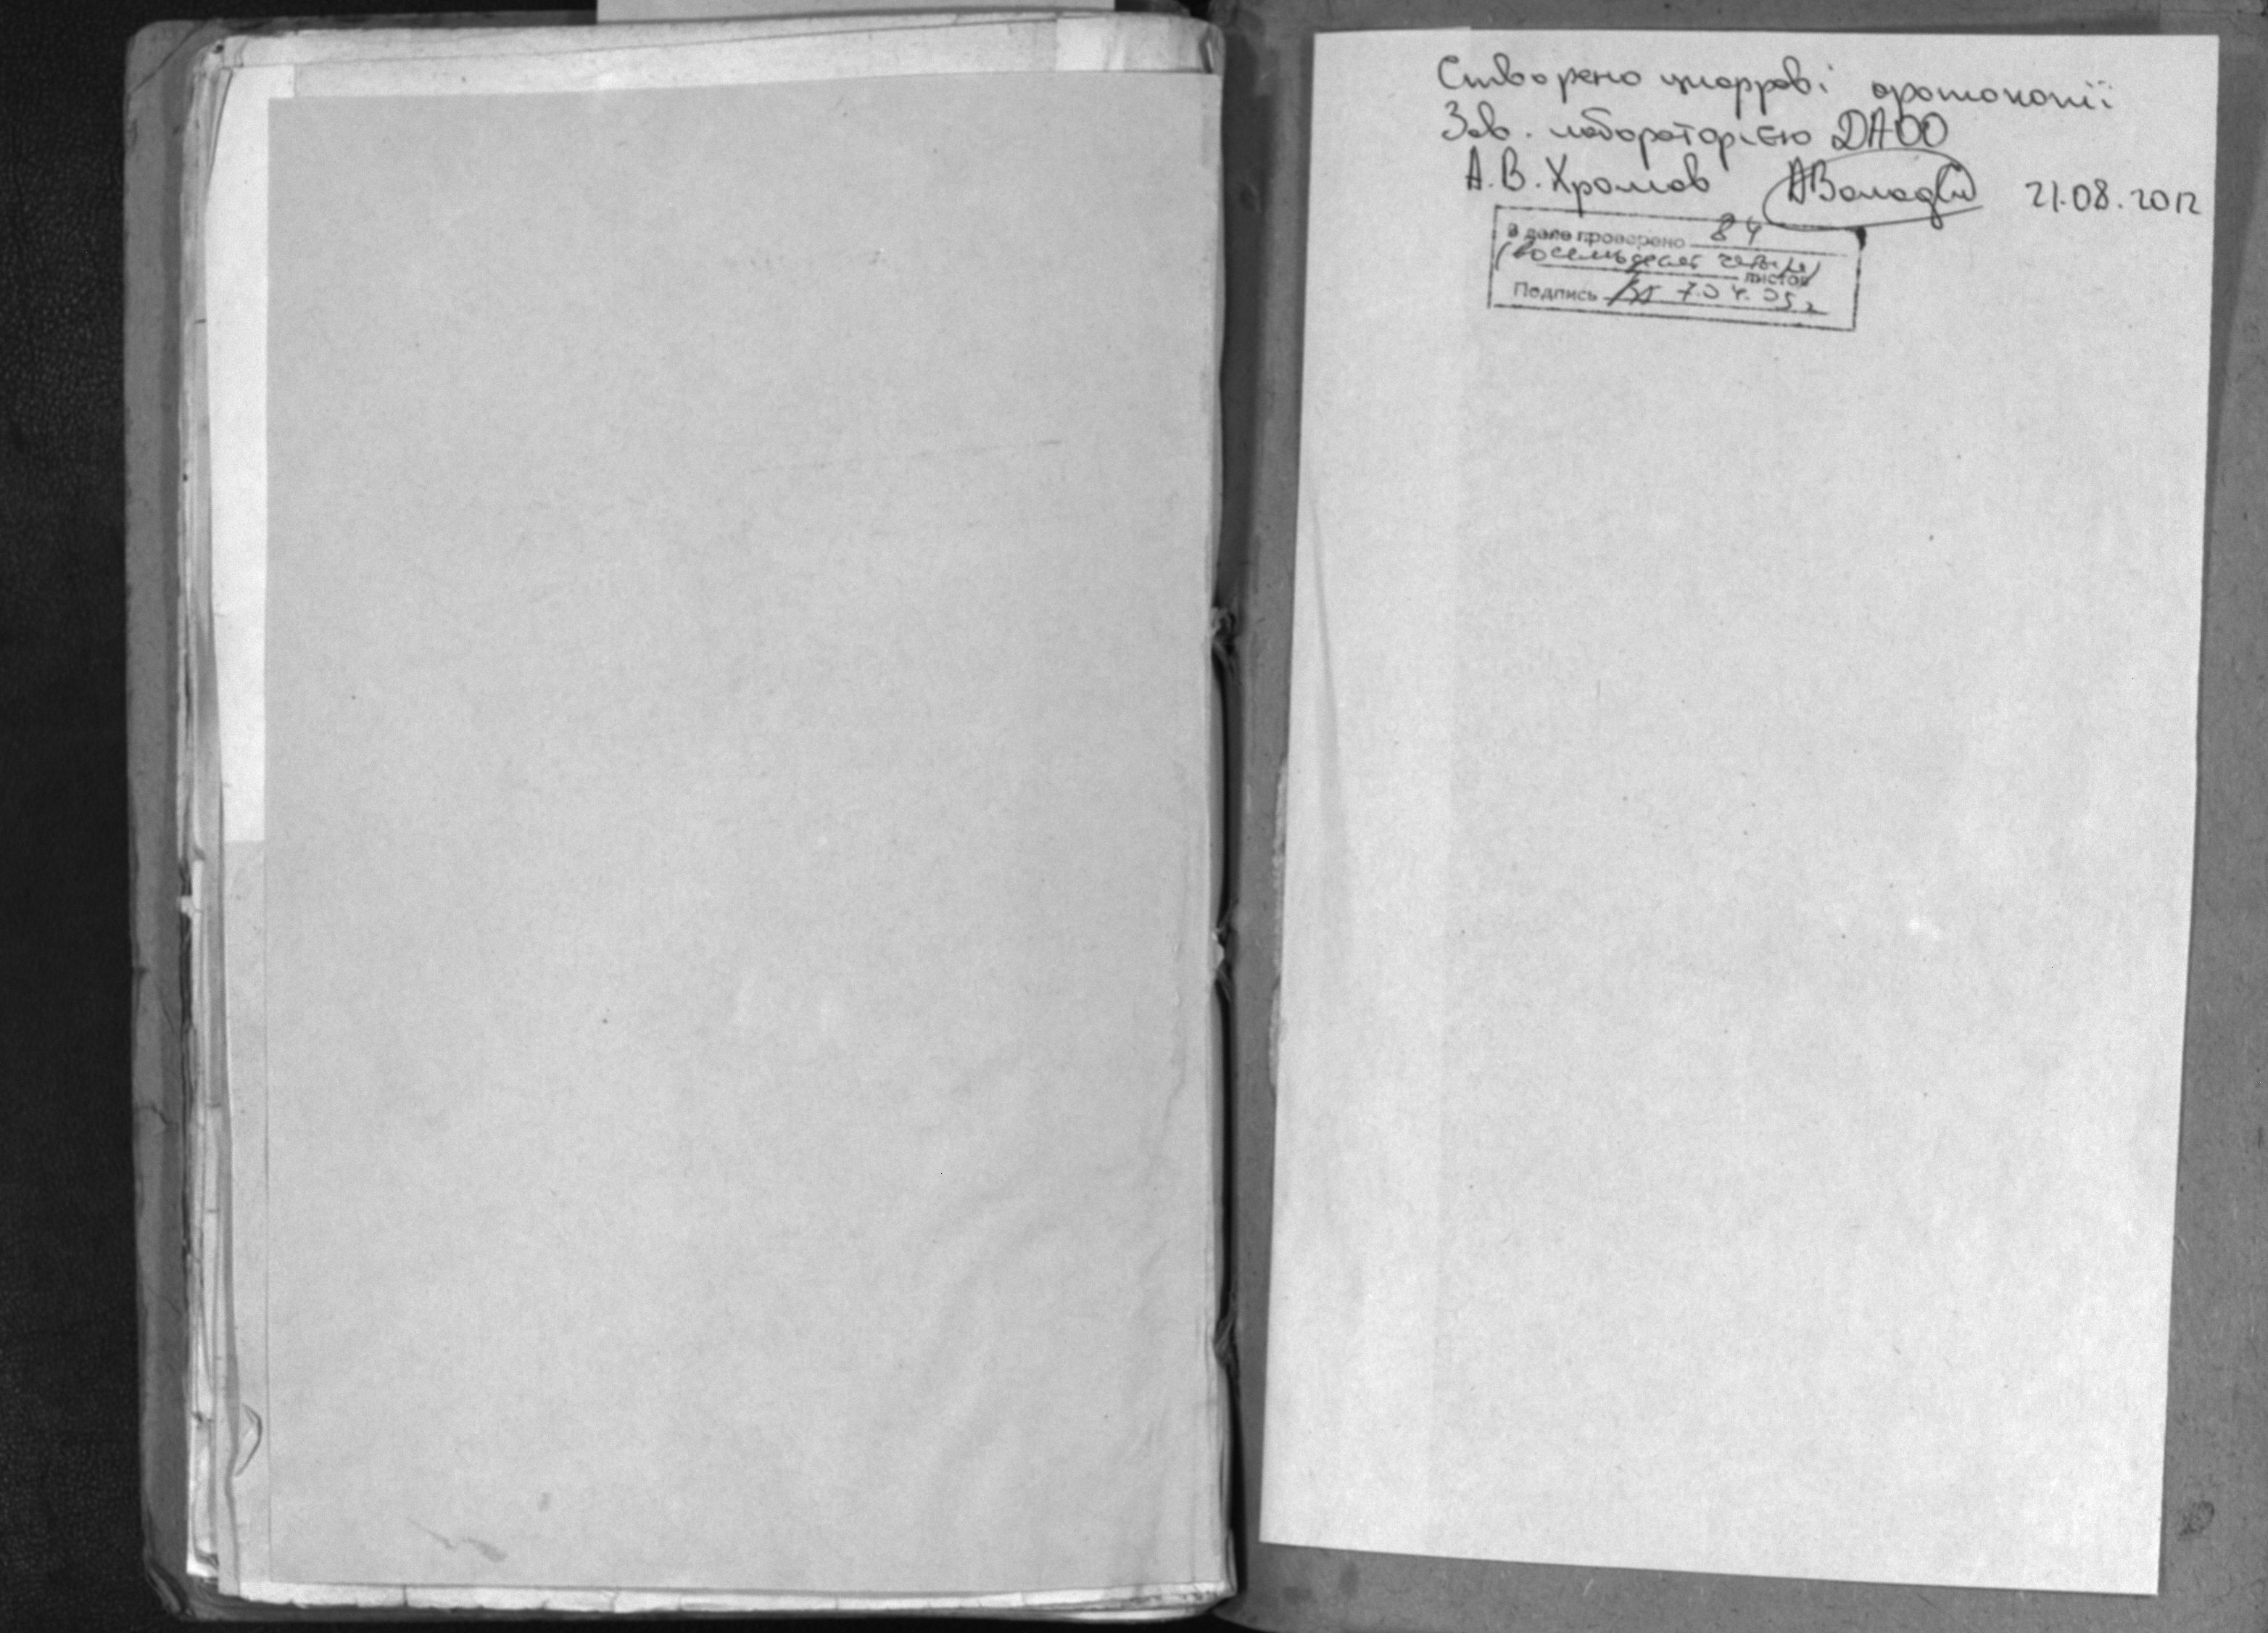 Створено цифрові фотокопії
Зав. лабораторією ДАОО
А.В. Хромов 21.08.2012
В деле проверено 84
(восемьдесят четыре)
листов
Подпись 7.04.05г